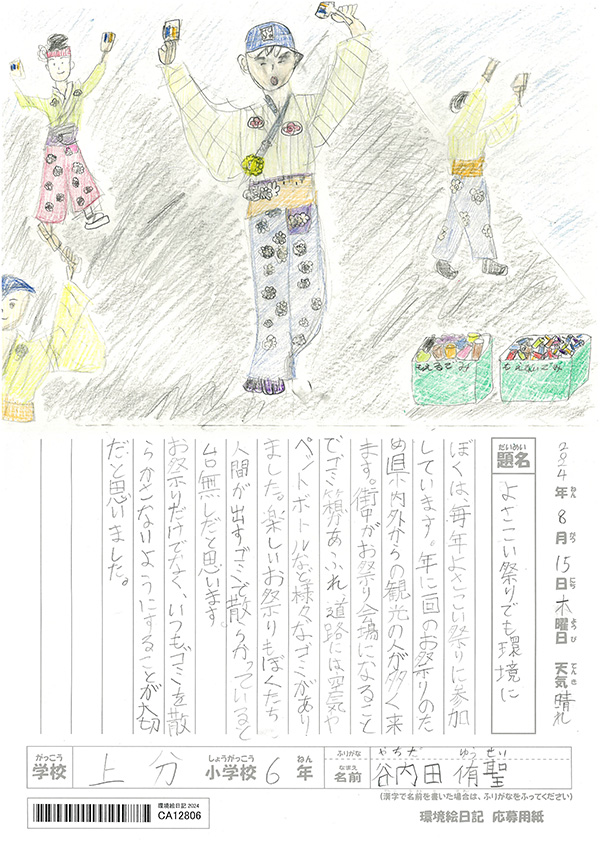 もえるごみ
もえないごみ
2024年ねん 8月がつ 15日にち 木曜日ようび 天気てんき 晴れ
題名だいめい よさこい祭りでも環境に
ぼくは、毎年よさこい祭りに参加
しています。年に一回のお祭りのた
め県内外からの観光の人が多く来
ます。街中がお祭り会場になること
でゴミ箱があふれ、道路には空気や
ペットボトルなど様々なゴミがあり
ました。楽しいお祭りもぼくたち
人間が出すゴミで散らかっていると
台無しだと思います。
お祭りだけでなく、いつもゴミを散
らかさないようにすることが大切
だと思いました。
がっこう 学校 上分 しょうがっこう 小学校 6 ねん 年 ふりがな やちだ ゆうせい
なまえ 名前 谷内田 侑聖
(漢字で名前を書いた場合は、ふりがなをふってください)
環境絵日記 2024
CA12806
環境絵日記 応募用紙